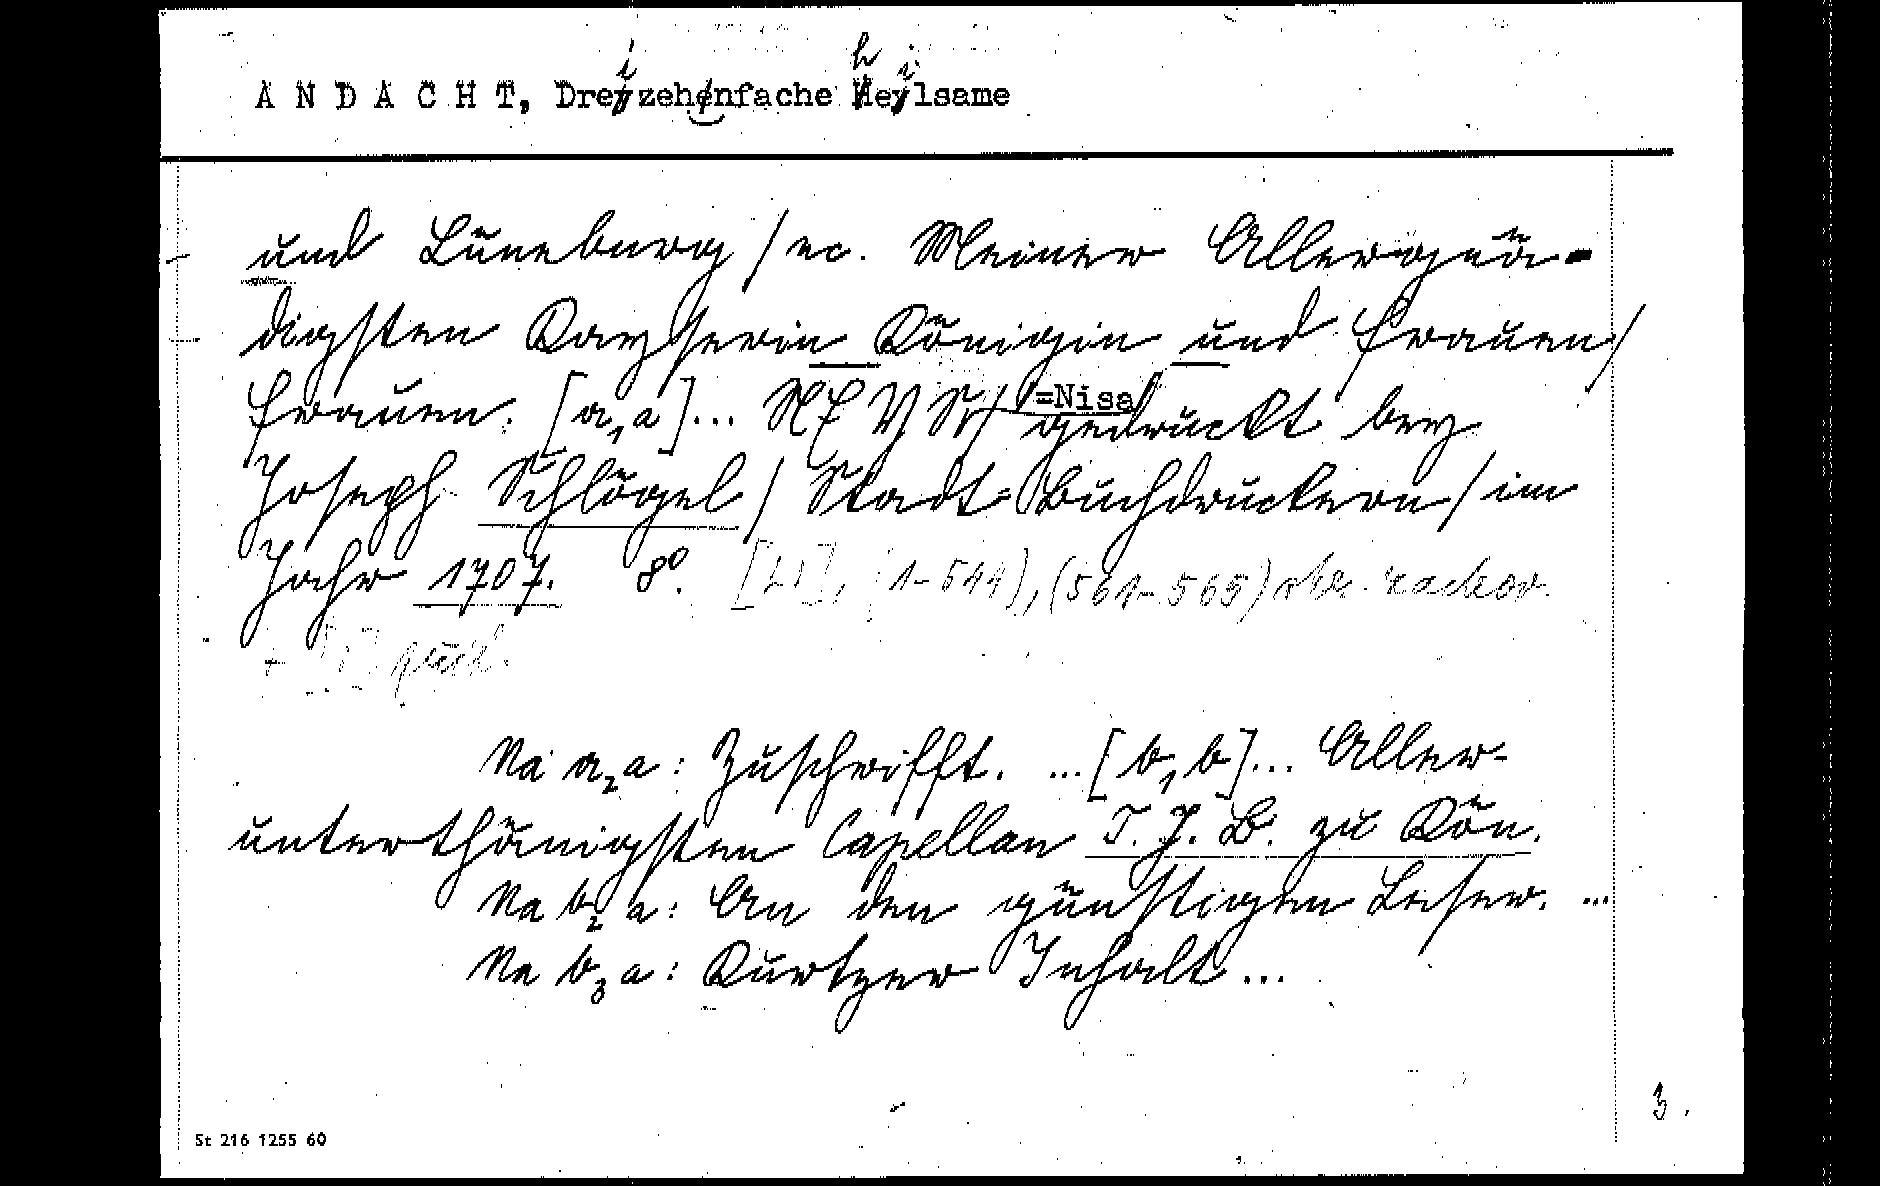 A N D A C H T, Dreizehnfache heilsame
und Lüneburg / ec. Meiner Allergnä-
digsten Kayserin Königin und Frauen /
Frauen. [a₁a]... NEYSS / =Nisa gedruckt bey
Joseph Schlögel / Stadt=Buchdruckern / im
Jahr 1707. 8°. [21], (1-544), (561-565) str.
+
Na a₂a: Zuschrifft. ...[b₁b]... Aller-
unterthänigsten Capellan T. J. B. zu Kön.
Na b₂a: An den günstigen Leser. ...
Na b₃a: Kurtzer Inhalt ...
3.
St 216 1255 60